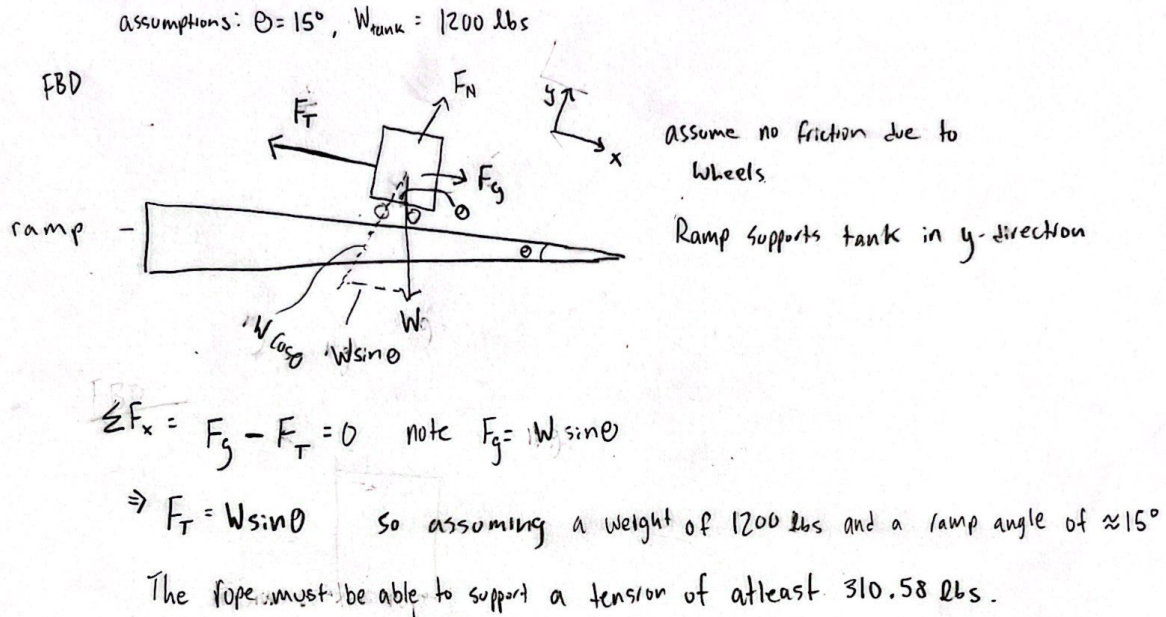 assumptions: θ = 15°, W_tank = 1200 lbs
FBD
F_N
F_T
y
x
assume no friction due to
wheels
F_g
θ
ramp -
θ
Ramp supports tank in y-direction
W
W cosθ
W sinθ
ΣF_x = F_g - F_T = 0 note F_g = W sinθ
⇒ F_T = W sinθ so assuming a weight of 1200 lbs and a ramp angle of ≈ 15°
The rope must be able to support a tension of atleast 310.58 lbs.